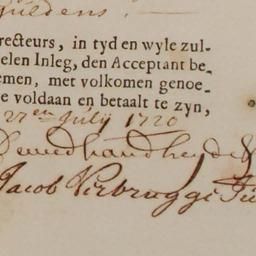 guldens.
recteurs, in tyd en wyle zul-
elen Inleg, den Acceptant be-
emen, met volkomen genoe-
e voldaan en betaalt te zyn,
27en July 1720
Jacob Verbrugge